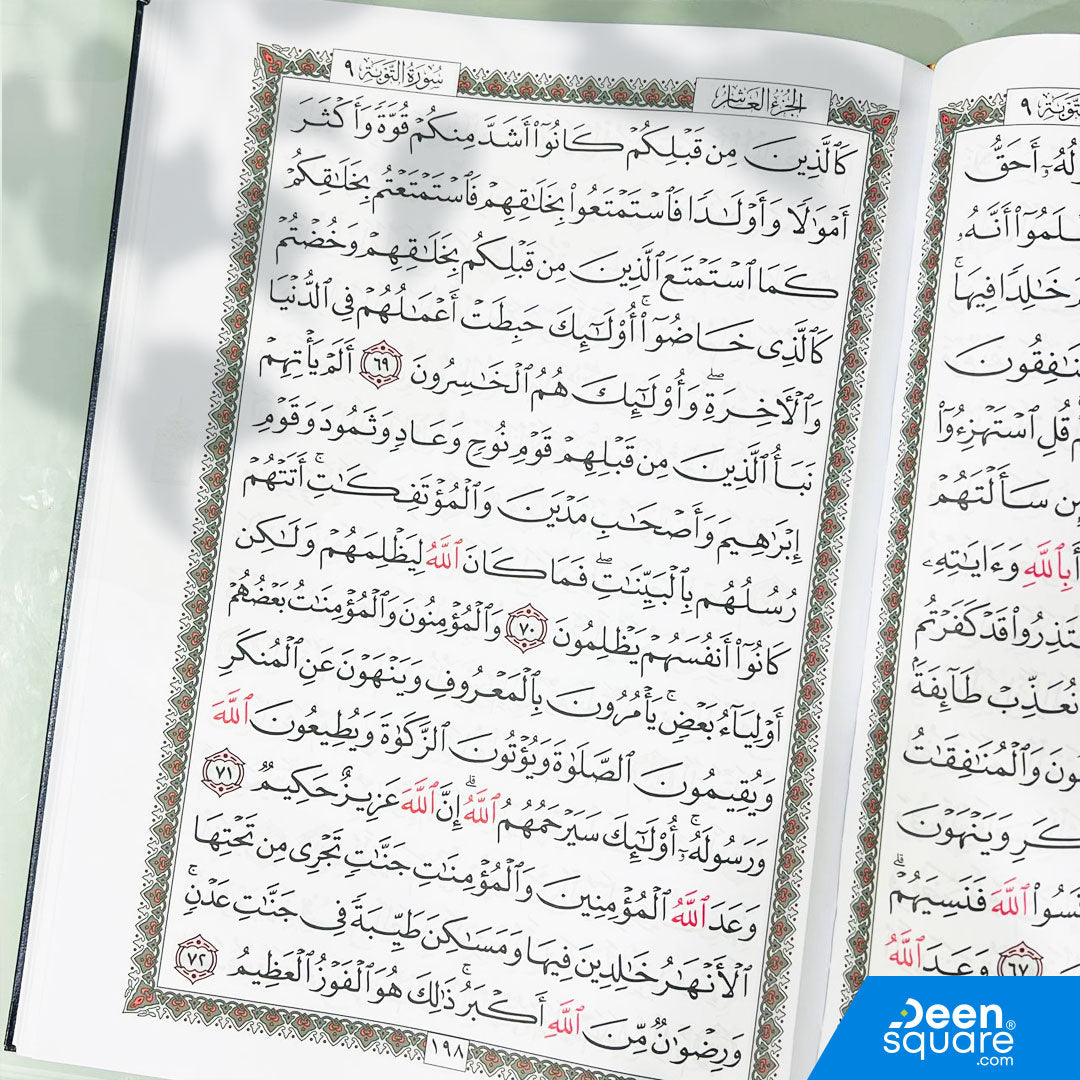 سُورَةُ التَّوْبَة ٩
الجُزْءُ العَاشِرُ
كَٱلَّذِينَ مِن قَبْلِكُمْ كَانُوٓا۟ أَشَدَّ مِنكُمْ قُوَّةً وَأَكْثَرَ
أَمْوَٰلًا وَأَوْلَٰدًا فَٱسْتَمْتَعُوا۟ بِخَلَٰقِهِمْ فَٱسْتَمْتَعْتُم بِخَلَٰقِكُمْ
كَمَا ٱسْتَمْتَعَ ٱلَّذِينَ مِن قَبْلِكُم بِخَلَٰقِهِمْ وَخُضْتُمْ
كَٱلَّذِى خَاضُوٓا۟ ۚ أُو۟لَٰٓئِكَ حَبِطَتْ أَعْمَٰلُهُمْ فِى ٱلدُّنْيَا
وَٱلْءَاخِرَةِ ۖ وَأُو۟لَٰٓئِكَ هُمُ ٱلْخَٰسِرُونَ ٦٩ أَلَمْ يَأْتِهِمْ
نَبَأُ ٱلَّذِينَ مِن قَبْلِهِمْ قَوْمِ نُوحٍ وَعَادٍ وَثَمُودَ وَقَوْمِ
إِبْرَٰهِيمَ وَأَصْحَٰبِ مَدْيَنَ وَٱلْمُؤْتَفِكَٰتِ ۚ أَتَتْهُمْ
رُسُلُهُم بِٱلْبَيِّنَٰتِ ۖ فَمَا كَانَ ٱللَّهُ لِيَظْلِمَهُمْ وَلَٰكِن
كَانُوٓا۟ أَنفُسَهُمْ يَظْلِمُونَ ٧٠ وَٱلْمُؤْمِنُونَ وَٱلْمُؤْمِنَٰتُ بَعْضُهُمْ
أَوْلِيَآءُ بَعْضٍ ۚ يَأْمُرُونَ بِٱلْمَعْرُوفِ وَيَنْهَوْنَ عَنِ ٱلْمُنكَرِ
وَيُقِيمُونَ ٱلصَّلَوٰةَ وَيُؤْتُونَ ٱلزَّكَوٰةَ وَيُطِيعُونَ ٱللَّهَ
وَرَسُولَهُۥٓ ۚ أُو۟لَٰٓئِكَ سَيَرْحَمُهُمُ ٱللَّهُ ۗ إِنَّ ٱللَّهَ عَزِيزٌ حَكِيمٌ ٧١
وَعَدَ ٱللَّهُ ٱلْمُؤْمِنِينَ وَٱلْمُؤْمِنَٰتِ جَنَّٰتٍ تَجْرِى مِن تَحْتِهَا
ٱلْأَنْهَٰرُ خَٰلِدِينَ فِيهَا وَمَسَٰكِنَ طَيِّبَةً فِى جَنَّٰتِ عَدْنٍ ۚ
وَرِضْوَٰنٌ مِّنَ ٱللَّهِ أَكْبَرُ ۚ ذَٰلِكَ هُوَ ٱلْفَوْزُ ٱلْعَظِيمُ ٧٢
١٩٨
٩
أَحَقُّ
أَنَّهُۥ
خَٰلِدًا فِيهَا ۚ
قُلِ ٱسْتَهْزِءُوٓا۟
سَأَلْتَهُمْ
أَبِٱللَّهِ وَءَايَٰتِهِۦ
قَدْ كَفَرْتُم
نُعَذِّبْ طَآئِفَةًۢ
وَٱلْمُنَٰفِقَٰتُ
وَيَنْهَوْنَ
ٱللَّهَ فَنَسِيَهُمْ ۗ
٦٧ وَعَدَ ٱللَّهُ
Deen
square®
.com